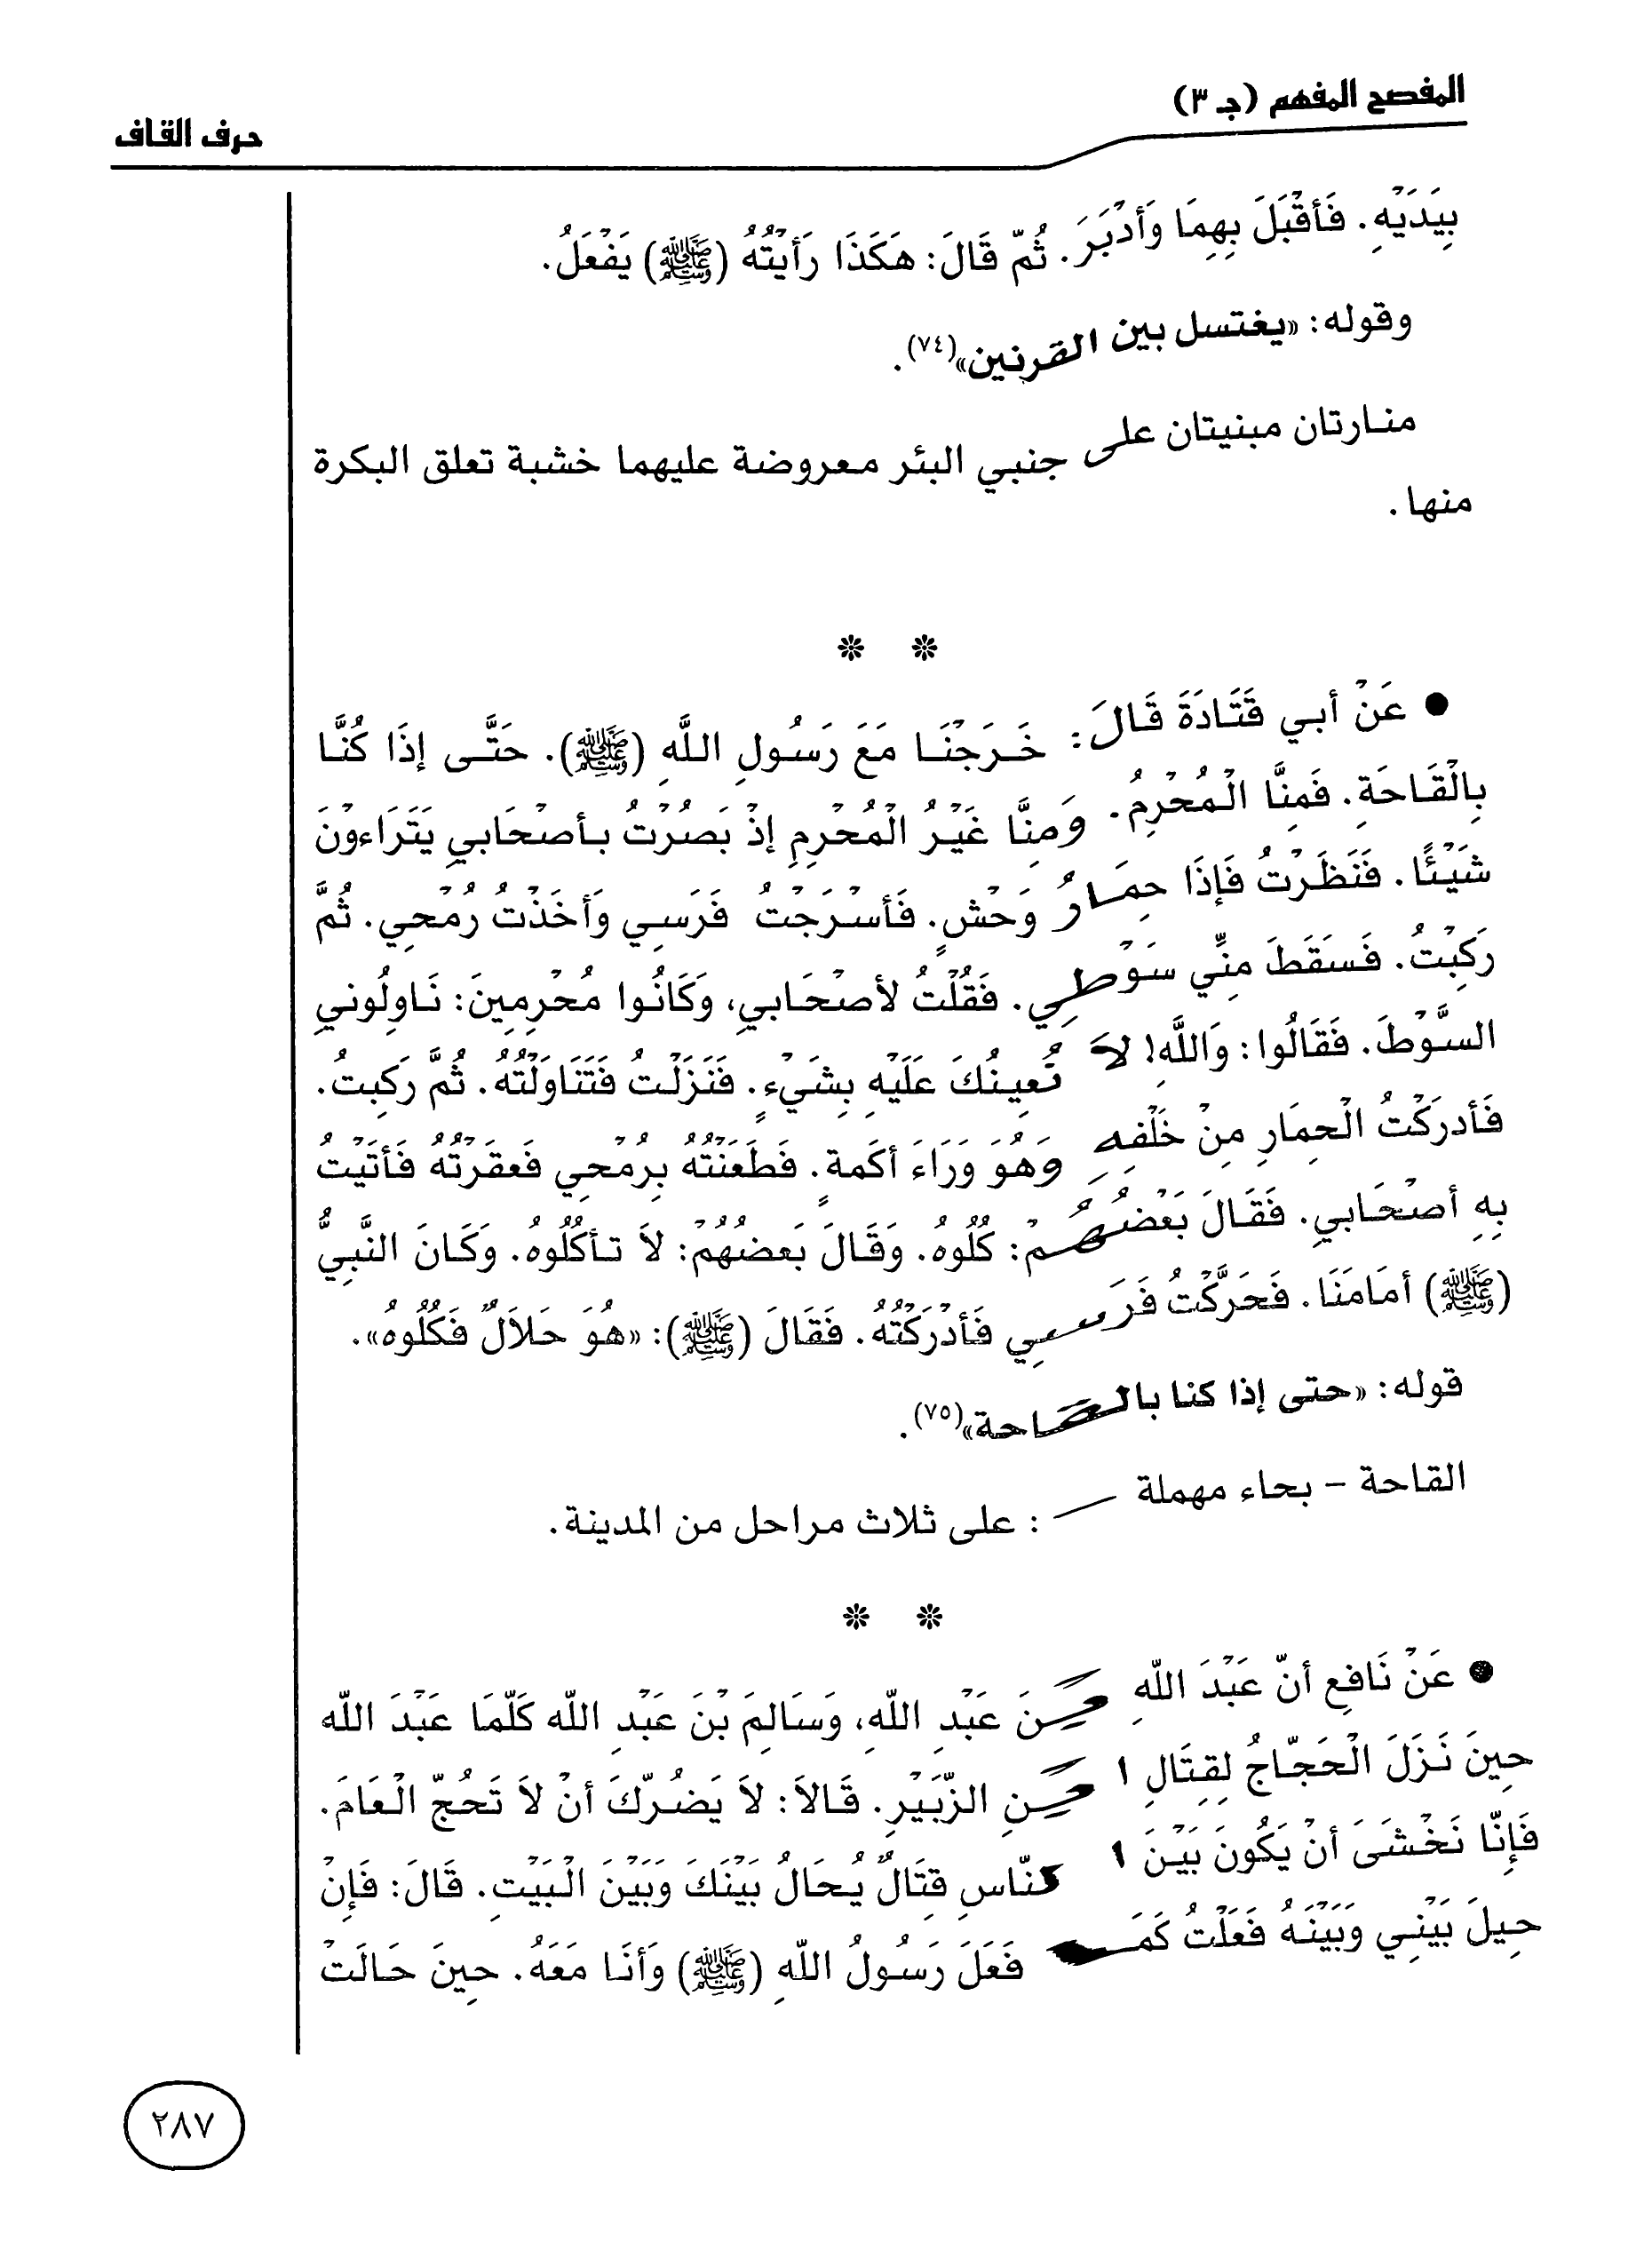 المفصح المفهم (جـ ٣)
حرف القاف
بِيَدَيْهِ. فَأقْبَلَ بِهِمَا وَأدْبَرَ. ثُمّ قَالَ: هَكَذَا رَأيْتُهُ (ﷺ) يَفْعَلُ.
وقوله: «يغتسل بين القرنين»(٧٤).
منارتان مبنيتان على جنبي البئر معروضة عليهما خشبة تعلق البكرة
منها.
* *
● عَنْ أبي قَتَادَةَ قَالَ: خَرَجْنَا مَعَ رَسُولِ اللَّهِ (ﷺ). حَتَّى إذَا كُنَّا
بِالْقَاحَةِ. فَمِنَّا الْمُحْرِمُ. وَمِنَّا غَيْرُ الْمُحْرِمِ إذْ بَصُرْتُ بأصْحَابي يَتَرَاءوْنَ
شَيْئًا. فَنَظَرْتُ فَإذَا حِمَارُ وَحْشٍ. فَأسْرَجْتُ فَرَسِي وَأخَذْتُ رُمْحِي. ثُمَّ
رَكِبْتُ. فَسَقَطَ مِنِّي سَوْطِي. فَقُلْتُ لأصْحَابي، وَكَانُوا مُحْرِمِينَ: نَاوِلُوني
السَّوْطَ. فَقَالُوا: وَاللَّهِ! لاَ نُعِينُكَ عَلَيْهِ بِشَيْءٍ. فَنَزَلْتُ فَتَنَاوَلْتُهُ. ثُمَّ رَكِبتُ.
فَأدرَكْتُ الْحِمَارِ مِنْ خَلْفِهِ وَهُوَ وَرَاءَ أكَمةٍ. فَطَعَنْتُهُ بِرُمْحِي فَعقَرْتُهُ فَأتَيْتُ
بِهِ أصْحَابي. فَقَالَ بَعْضُهُمْ: كُلُوهُ. وَقَالَ بَعضُهُمْ: لاَ تأكُلُوهُ. وَكَانَ النَّبيُّ
(ﷺ) أمَامَنَا. فَحَرَّكْتُ فَرَسِي فَأدْرَكْتُهُ. فَقَالَ (ﷺ): «هُوَ حَلاَلٌ فَكُلُوهُ».
قوله: «حتى إذا كنا بالقاحة»(٧٥).
القاحة – بحاء مهملة –: على ثلاث مراحل من المدينة.
* *
● عَنْ نَافِعٍ أنّ عَبْدَ اللّهِ بْنَ عَبْدِ اللّهِ، وَسَالِمَ بْنَ عَبْدِ اللّه كَلّمَا عَبْدَ اللّه
حِينَ نَزَلَ الْحَجّاجُ لِقِتَالِ ابْنِ الزّبَيْرِ. قَالاَ: لاَ يَضُرّكَ أنْ لاَ تَحُجّ الْعَامَ.
فَإنّا نَخْشَىَ أنْ يَكُونَ بَيْنَ النّاسِ قِتَالٌ يُحَالُ بَيْنَكَ وَبَيْنَ الْبَيْتِ. قَالَ: فَإنْ
حِيلَ بَيْنِي وَبَيْنَهُ فَعَلْتُ كَمَا فَعَلَ رَسُولُ اللّهِ (ﷺ) وَأنَا مَعَهُ. حِينَ حَالَتْ
٢٨٧